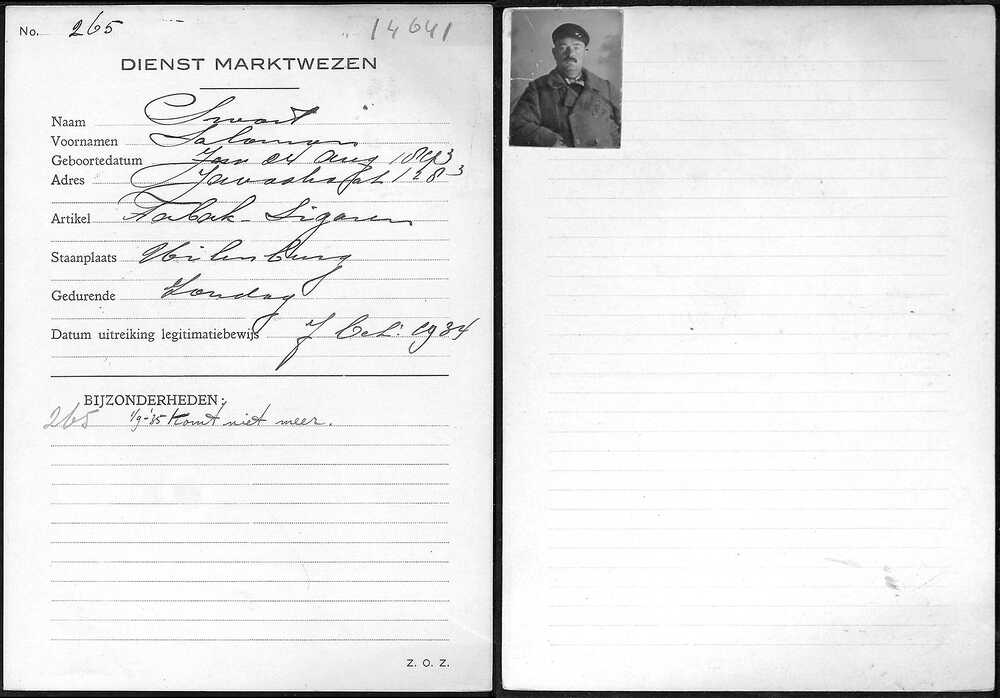 No. 265 14641
DIENST MARKTWEZEN
Naam Swart
Voornamen Salomon
Geboortedatum 24 Aug 1893
Adres 128³
Artikel Tabak - Sigaren
Staanplaats Uilenburg
Gedurende Zondag
Datum uitreiking legitimatiebewijs 7 Oct. 1934
BIJZONDERHEDEN:
265 1/9-'35 Komt niet meer.
Z. O. Z.